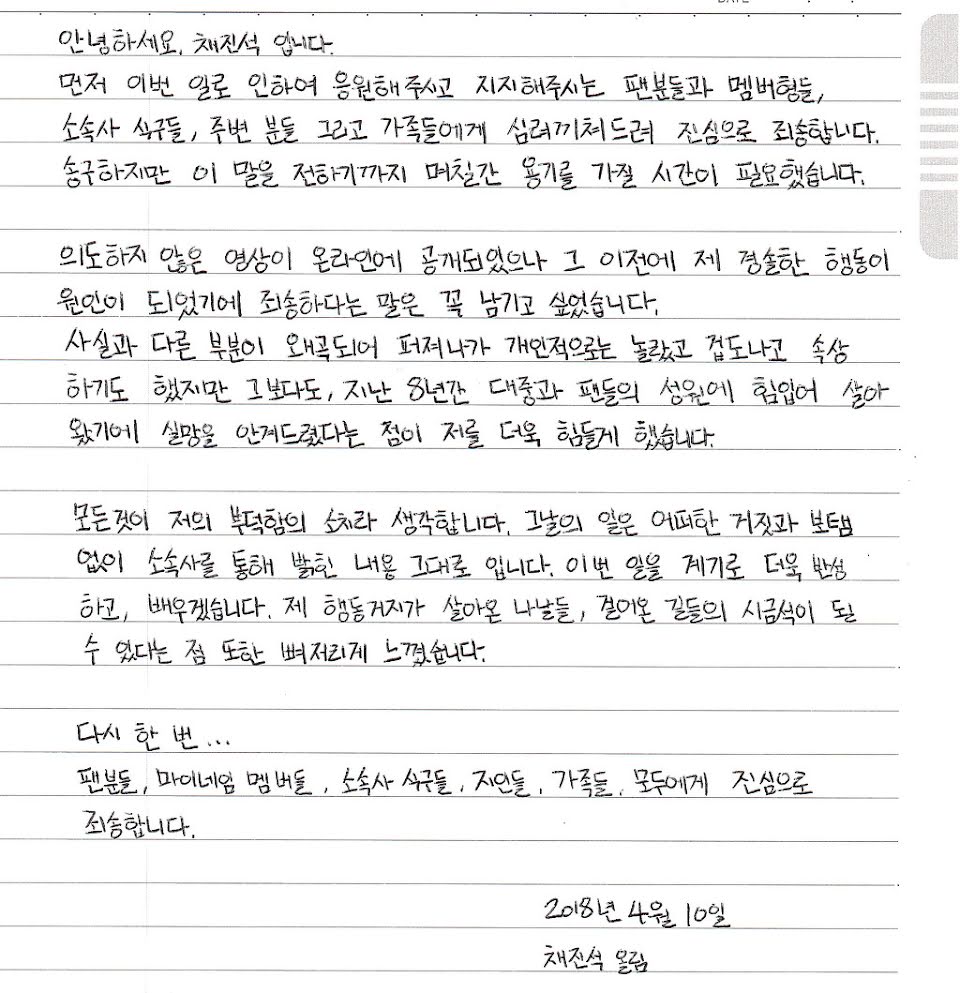 DATE
안녕하세요, 채진석 입니다.
먼저 이번 일로 인하여 응원해주시고 지지해주시는 팬분들과 멤버형들,
소속사 식구들, 주변 분들 그리고 가족들에게 심려끼쳐드려 진심으로 죄송합니다.
송구하지만 이 말을 전하기까지 며칠간 용기를 가질 시간이 필요했습니다.
의도하지 않은 영상이 온라인에 공개되었으나 그 이전에 제 경솔한 행동이
원인이 되었기에 죄송하다는 말은 꼭 남기고 싶었습니다.
사실과 다른 부분이 왜곡되어 퍼져나가 개인적으로는 놀랐고 겁도나고 속상
하기도 했지만 그보다도, 지난 8년간 대중과 팬들의 성원에 힘입어 살아
왔기에 실망을 안겨드렸다는 점이 저를 더욱 힘들게 했습니다.
모든것이 저의 부덕함의 소치라 생각합니다. 그날의 일은 어떠한 거짓과 보탬
없이 소속사를 통해 밝힌 내용 그대로 입니다. 이번 일을 계기로 더욱 반성
하고, 배우겠습니다. 제 행동거지가 살아온 나날들, 걸어온 길들의 시금석이 될
수 있다는 점 또한 뼈저리게 느꼈습니다.
다시 한 번...
팬분들, 마이네임 멤버들, 소속사 식구들, 지인들, 가족들, 모두에게 진심으로
죄송합니다.
2018년 4월 10일
채진석 올림